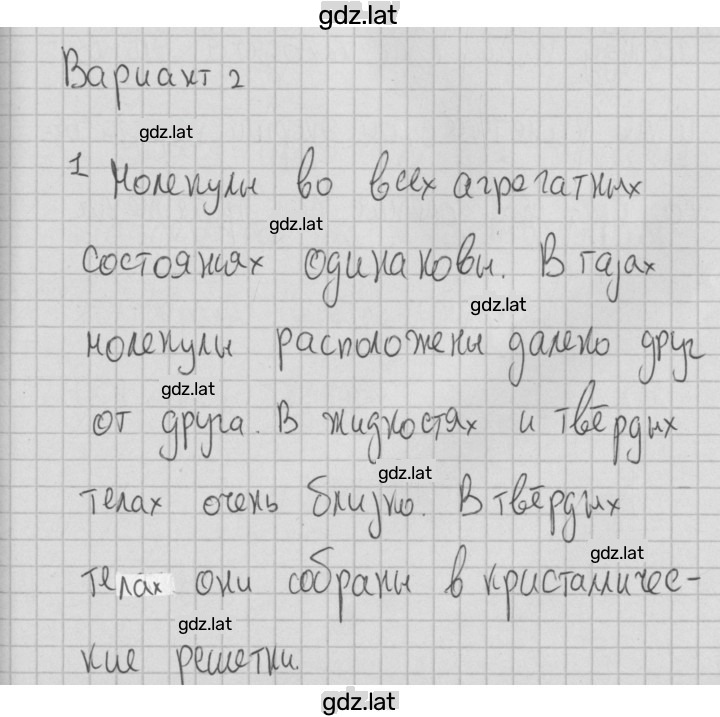 gdz.lat
Вариант 2
gdz.lat
1 Молекулы во всех агрегатных
gdz.lat
состояниях одинаковы. В газах
gdz.lat
молекулы расположены далеко друг
gdz.lat
от друга. В жидкостях и твёрдых
gdz.lat
телах очень близко. В твёрдых
gdz.lat
телах они собраны в кристалличес-
gdz.lat
кие решетки.
gdz.lat